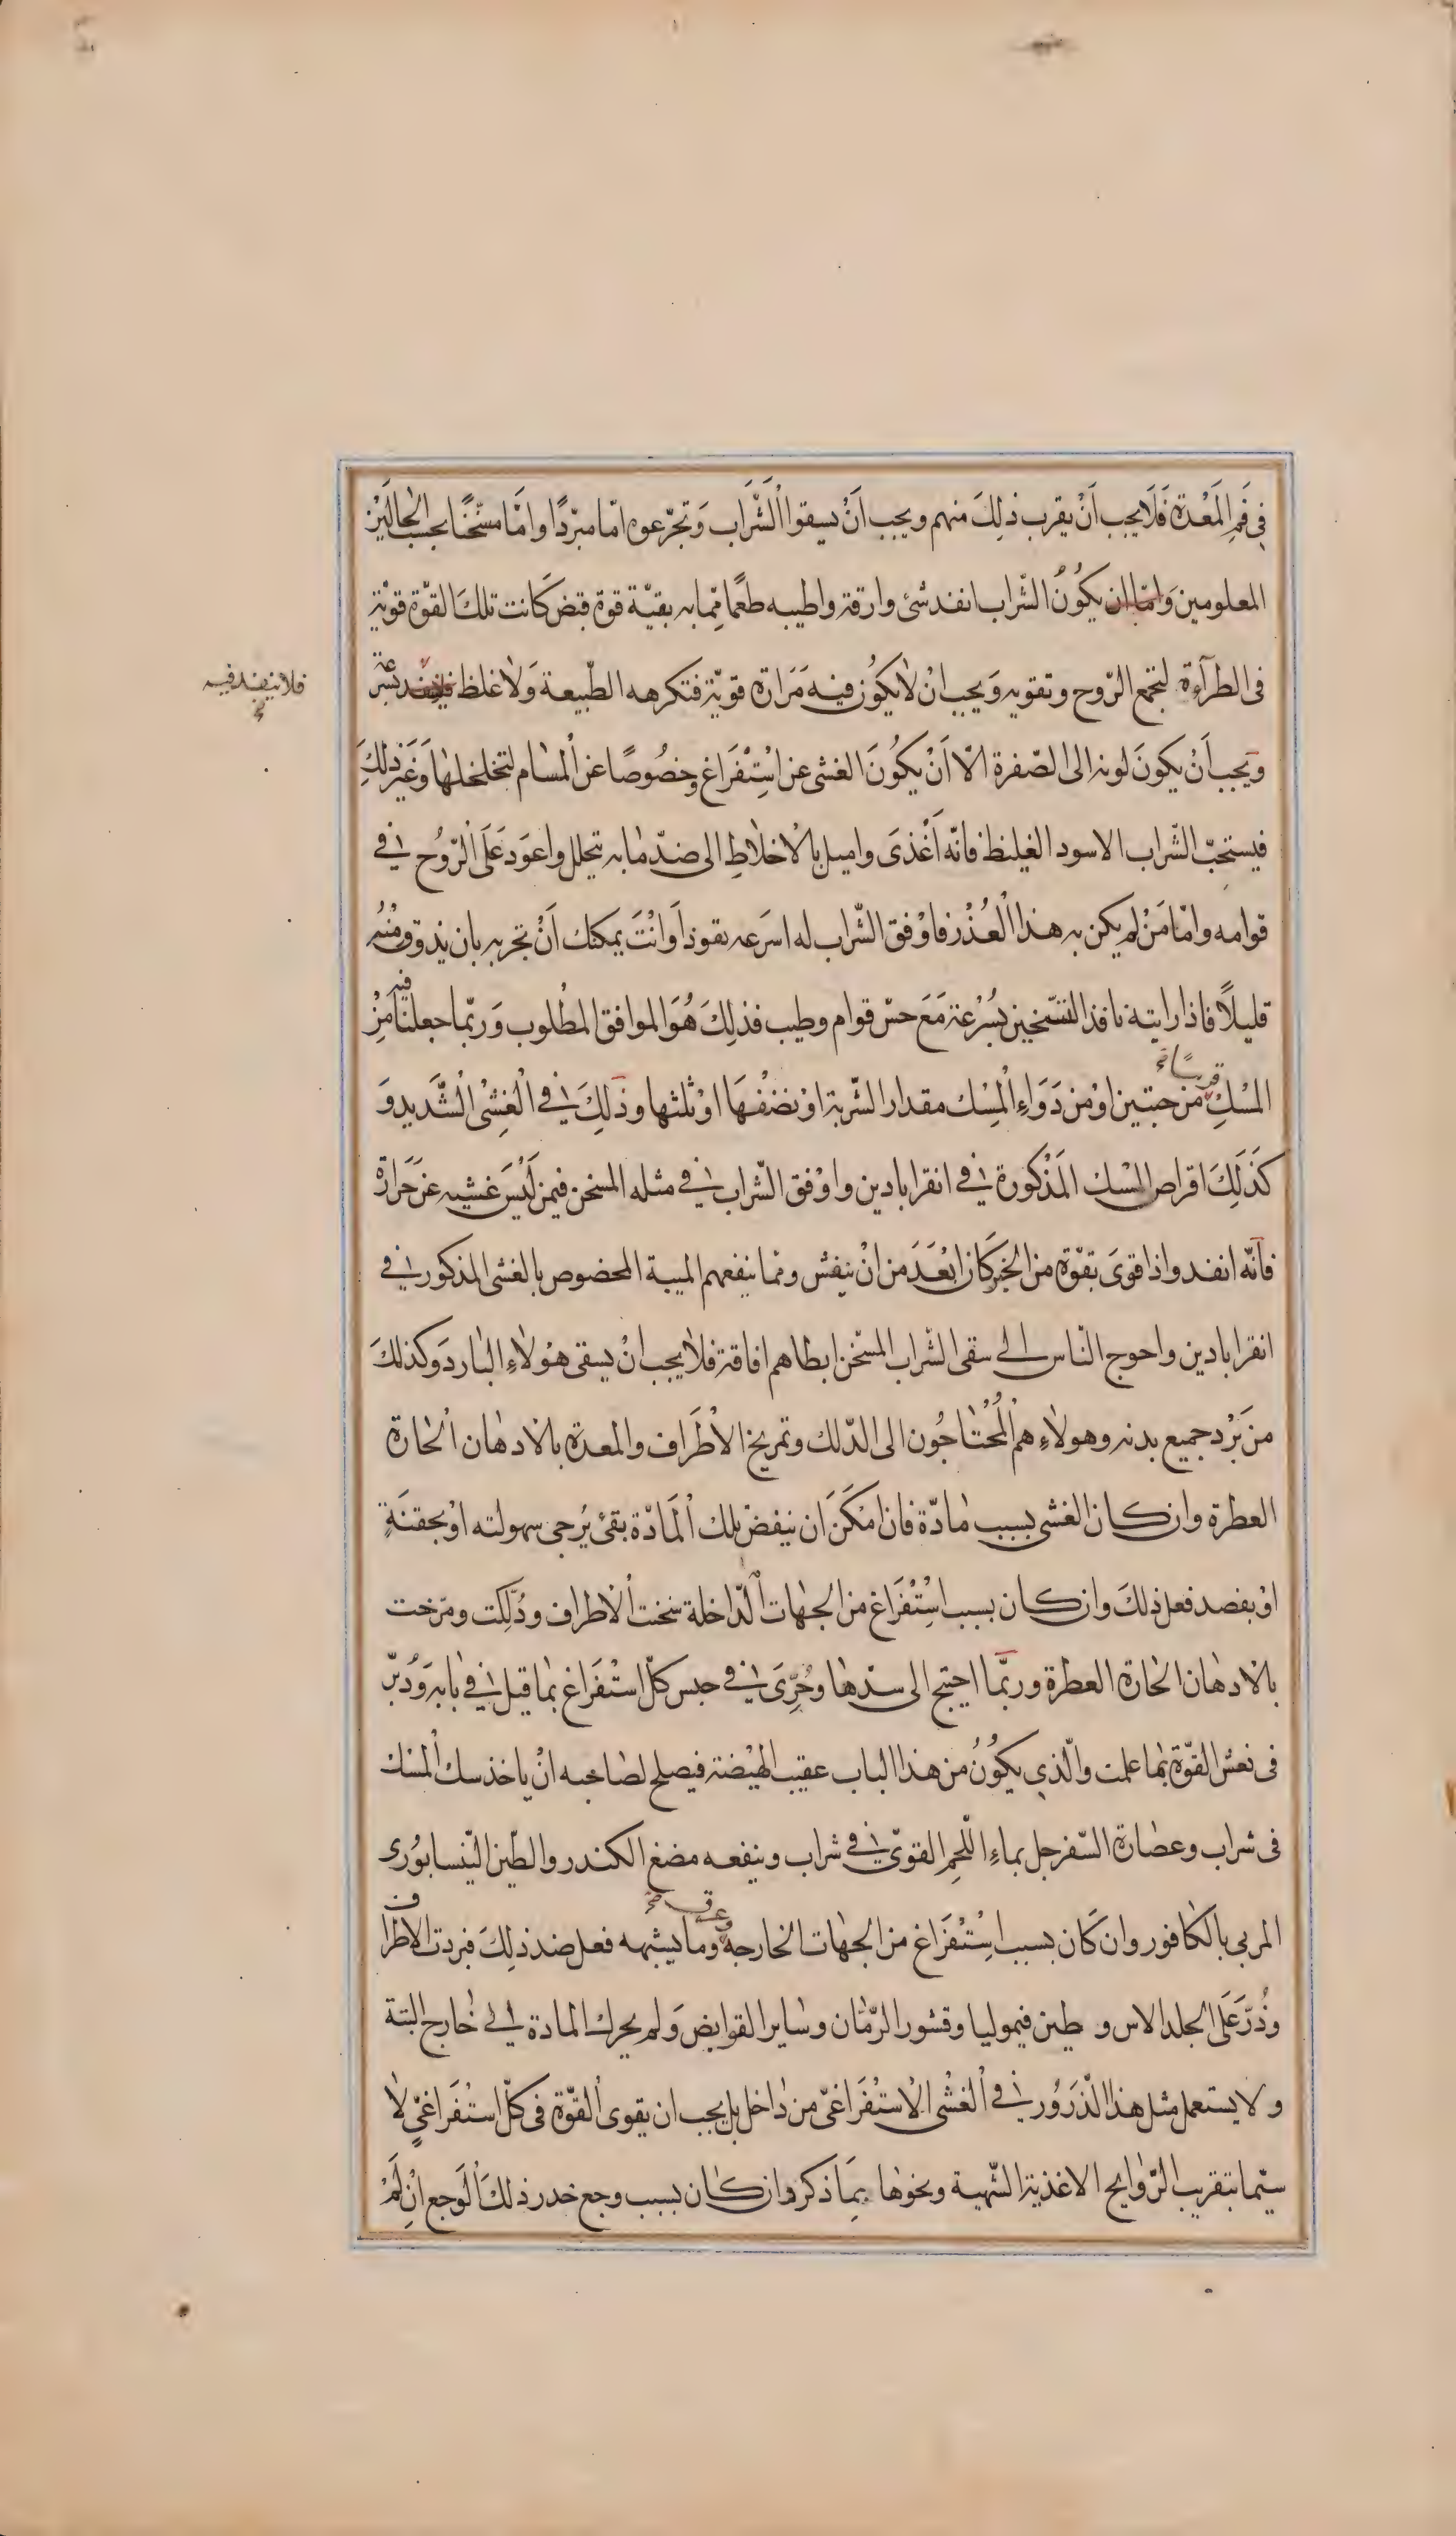 في فَمِ المَعْدة فَلَا يجب أَنْ يقرب ذلِكَ منهم ويجب أَنْ يسقوا الشَّراب وَتجرّعوه امّا مبرّدًا وامَّا مسخّنًا بحسب الحالَيْن
المعلومين وَامّا ان يكُونُ الشّراب انفد شئ وارقة واطيبه طعمًا ممّا به بقيّة قوة قبض كَانت تلكَ القوّة قويّة
فى الطرآءة لتجمع الرّوح وتقويه وَيجب انْ لا يكون فيه مَرَارة قويّة فتكرهه الطّبيعة وَلا غلظ فلا ينفد بسرعة
فلا ينفد فيه
ويَجب أَنْ يكونَ لونه الى الصّفرة الّا اَنْ يكُونَ الغشى عن اسْتِفْرَاغ وخصُوصًا عن المسام لتخلخلها وَغَيْر ذلِكَ
فيستحبّ الشّراب الاسود الغليظ فانّه أَغْذىَ واميل بالاخلاطِ الى ضدّ ما به تحلل واعوَد عَلَى الرّوُح في
قوامه وامّا مَنْ لم يكن به هذا الْعُذْر فاوْفق الشّراب له اسرَعه نفوذاً وَانْتَ يمكنك اَنْ تجربه بان يذوق منْهُ
قليلاً فاذا رايته نافذ التسّخين بسُرْعة مَعَ حسْن قوام وطيب فذلِكَ هُوَ الموافق المطْلوب وَربّما جعلنا فيه مِنْ
المسْكِ قريبًا من حبتين اوْ من دَوَاءِ المِسْك مقدار الشّربة اوْ نصْفهَا اوْ ثلثها وذلِكَ في الْغشْىِ الشَّديد وَ
كَذَلِكَ اقراص المسْك المَذْكورة في انقراباذين واوْفق الشّراب في مثله المسخن فيمن لَيْسَ غشيه عن حَرَارة
فانّه انفد واذا قوىَ بقوّة من الخبز كَان ابْعَدَ من انْ ينفش ومما ينفعهم الميبة المخصوص بالغشى المذكور في
انقراباذين واحوج النّاس الى سقى الشّراب المسّخن ابطاهم افاقة فلا يجب انْ يسقى هؤلاءِ البارد وَكذلكَ
من بَرْد جميع بدنه وهولاءِ هم الْمُحْتاجُون الى الدّلك وتمريخ الاطَراف والمعدة بالادهان الحارة
العطرة وان كان الغشى بسبب مادّة فان امْكَنَ ان ينفضْ تلك المَادّة بقئ يُرجى سهولته اوْ بحقنَةٍ
اوْ بفصد فعل ذلكَ وان كان بسبب اسْتِفْرَاغ من الجهات الّداخلة سخنت الاطراف ودُلّكِت ومرّخت
بالادهان الحارة العطرة وربّما احتيج الى سدّها وحُرِّىَ في حبس كلّ استفراغ بما قيل في بابه وَدُبّر
فى نعش القوّة بما علمت والّذي يكُونُ من هذا الباب عقيب الهيْضة فيصلح لصاحبه انْ ياخذ سك المسْك
فى شراب وعصارة السّفرجل بماءِ اللّحمِ القوىّ في شراب وينفعه مضغ الكندر والطّين النّيسابُورى
المربى بالكافور وان كَان بسبب اسْتِفْرَاغ من الجهات الخارجة وعرق وما يشبهه فعل ضد ذلِكَ فبردت الاطراف
وذُرَّ عَلَى الجلد الاس و طين قيموليا وقشور الرّمّان وسَاير القوابض وَلم يحرك المادة الى خارج البتة
ولا يستعمل مثل هذا الّذَرَوُر في الغشْى الاسْتفْرَاغىّ من داخل بل يجب ان يقوى القوّة فى كلّ استفراغىٍّ لا
سيّما بتقريب الرّوايح الاغذية الشّهية ونحوها بِمَا ذكر وان كان بسبب وجع خدر ذلكَ الَوجع انْ لَمْ